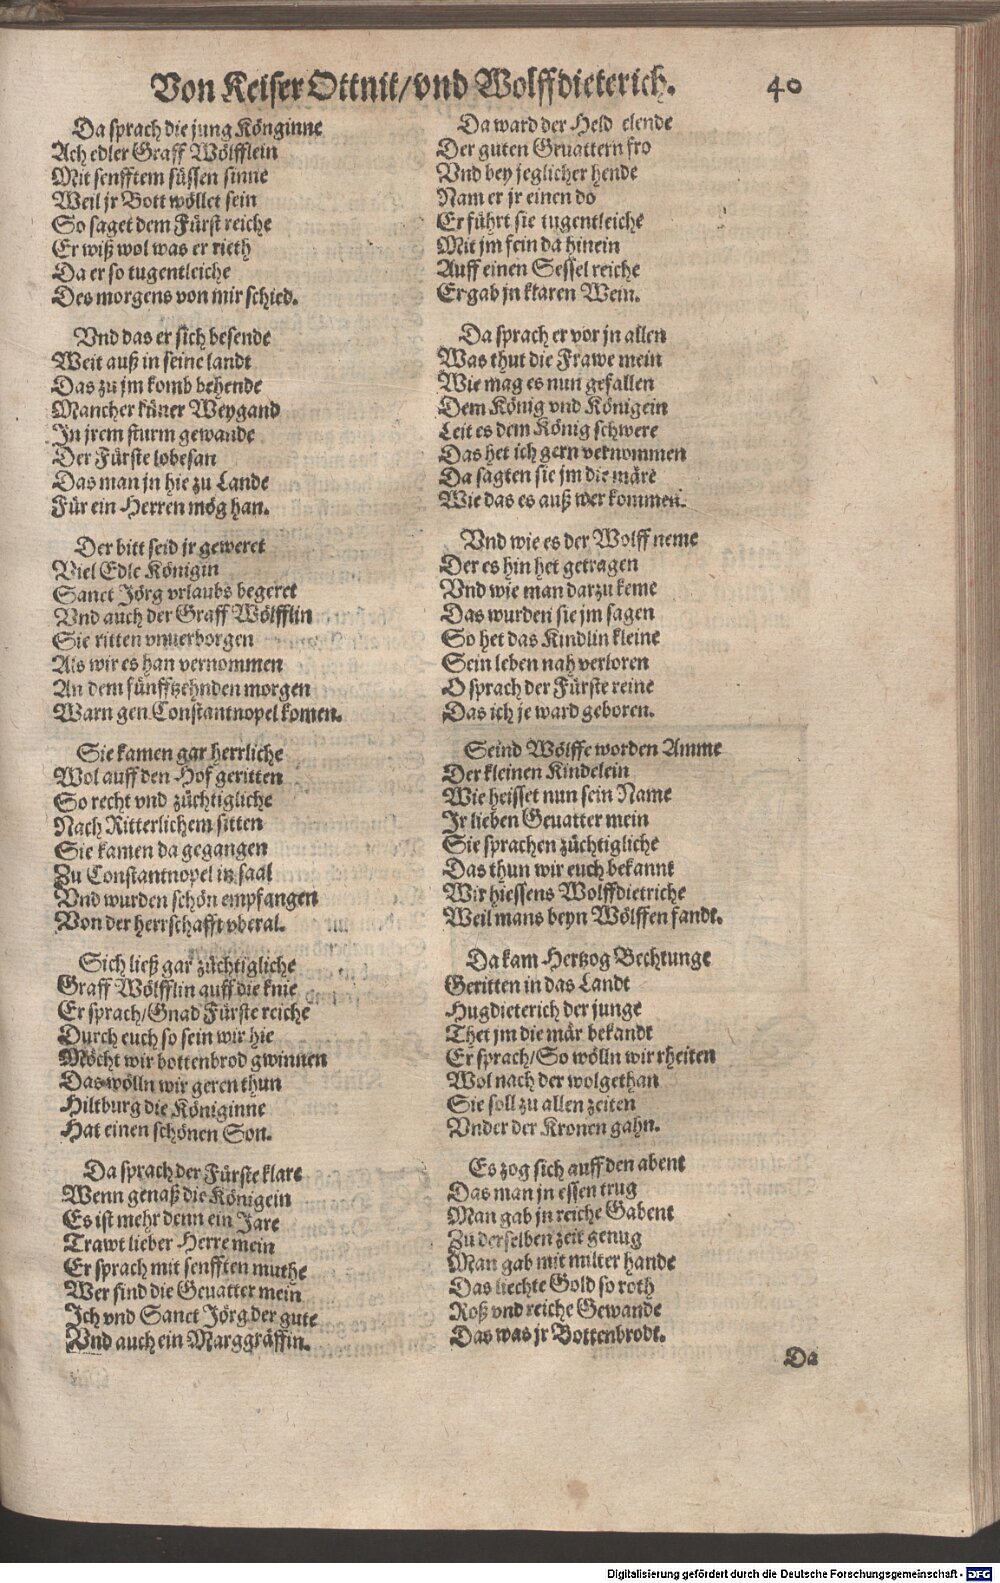 Von Keiser Ottnit/vnd Wolffdieterich. 40
Da sprach die jung Könginne
Ach edler Graff Wölfflein
Mit senfftem süssen sinne
Weil jr Bott wöllet sein
So saget dem Fürst reiche
Er wiß wol was er rieth
Da er so tugentleiche
Des morgens von mir schied.
Vnd das er sich besende
Weit auß in seine landt
Das zu jm komb behende
Mancher küner Weygand
In jrem sturm gewande
Der Fürste lobesan
Das man jn hie zu Lande
Für ein Herren mög han.
Der bitt seid jr geweret
Viel Edle Königin
Sanct Jörg vrlaubs begeret
Vnd auch der Graff Wölfflin
Sie ritten vnuerborgen
Als wir es han vernommen
An dem fünfftzehnden morgen
Warn gen Constantnopel komen.
Sie kamen gar herrliche
Wol auff den Hof geritten
So recht vnd züchtigliche
Nach Ritterlichem sitten
Sie kamen da gegangen
Zu Constantnopel in saal
Vnd wurden schön empfangen
Von der herrschafft vberal.
Sich ließ gar züchtigliche
Graff Wölfflin auff die knie
Er sprach/Gnad Fürste reiche
Durch euch so sein wir hie
Möcht wir bottenbrod gwinnen
Das wölln wir geren thun
Hiltburg die Königinne
Hat einen schönen Son.
Da sprach der Fürste klare
Wenn genaß die Königein
Es ist mehr denn ein Jare
Trawt lieber Herre mein
Er sprach mit senfften muthe
Wer sind die Geuatter mein
Ich vnd Sanct Jörg der gute
Vnd auch ein Marggräffin.
Da ward der Held elende
Der guten Gruattern fro
Vnd bey jeglicher hende
Nam er jr einen do
Er führt sie tugentleiche
Mit jm fein da hinein
Auff einen Sessel reiche
Er gab jn klaren Wein.
Da sprach er vor jn allen
Was thut die Frawe mein
Wie mag es nun gefallen
Dem König vnd Königein
Leit es dem König schwere
Das het ich gern vernommen
Da sagten sie jm die märe
Wie das es auß wer kommen.
Vnd wie es der Wolff neme
Der es hin het getragen
Vnd wie man darzu keme
Das wurden sie jm sagen
So het das Kindlin kleine
Sein leben nah verloren
O sprach der Fürste reine
Das ich je ward geboren.
Seind Wölffe worden Amme
Der kleinen Kindelein
Wie heisset nun sein Name
Jr lieben Geuatter mein
Sie sprachen züchtigliche
Das thun wir euch bekannt
Wir hiessens Wolffdietriche
Weil mans beyn Wölffen fandt.
Da kam Hertzog Bechtunge
Geritten in das Landt
Hugdieterich der junge
Thet jm die mär bekandt
Er sprach/So wölln wir rheiten
Wol nach der wolgethan
Sie soll zu allen zeiten
Vnder der Kronen gahn.
Es zog sich auff den abent
Das man jn essen trug
Man gab jn reiche Gabent
Zu derselben zeit genug
Man gab mit milter hande
Das liechte Gold so roth
Roß vnd reiche Gewande
Das was jr Bottenbrodt.
Da
Digitalisierung gefördert durch die Deutsche Forschungsgemeinschaft - DFG